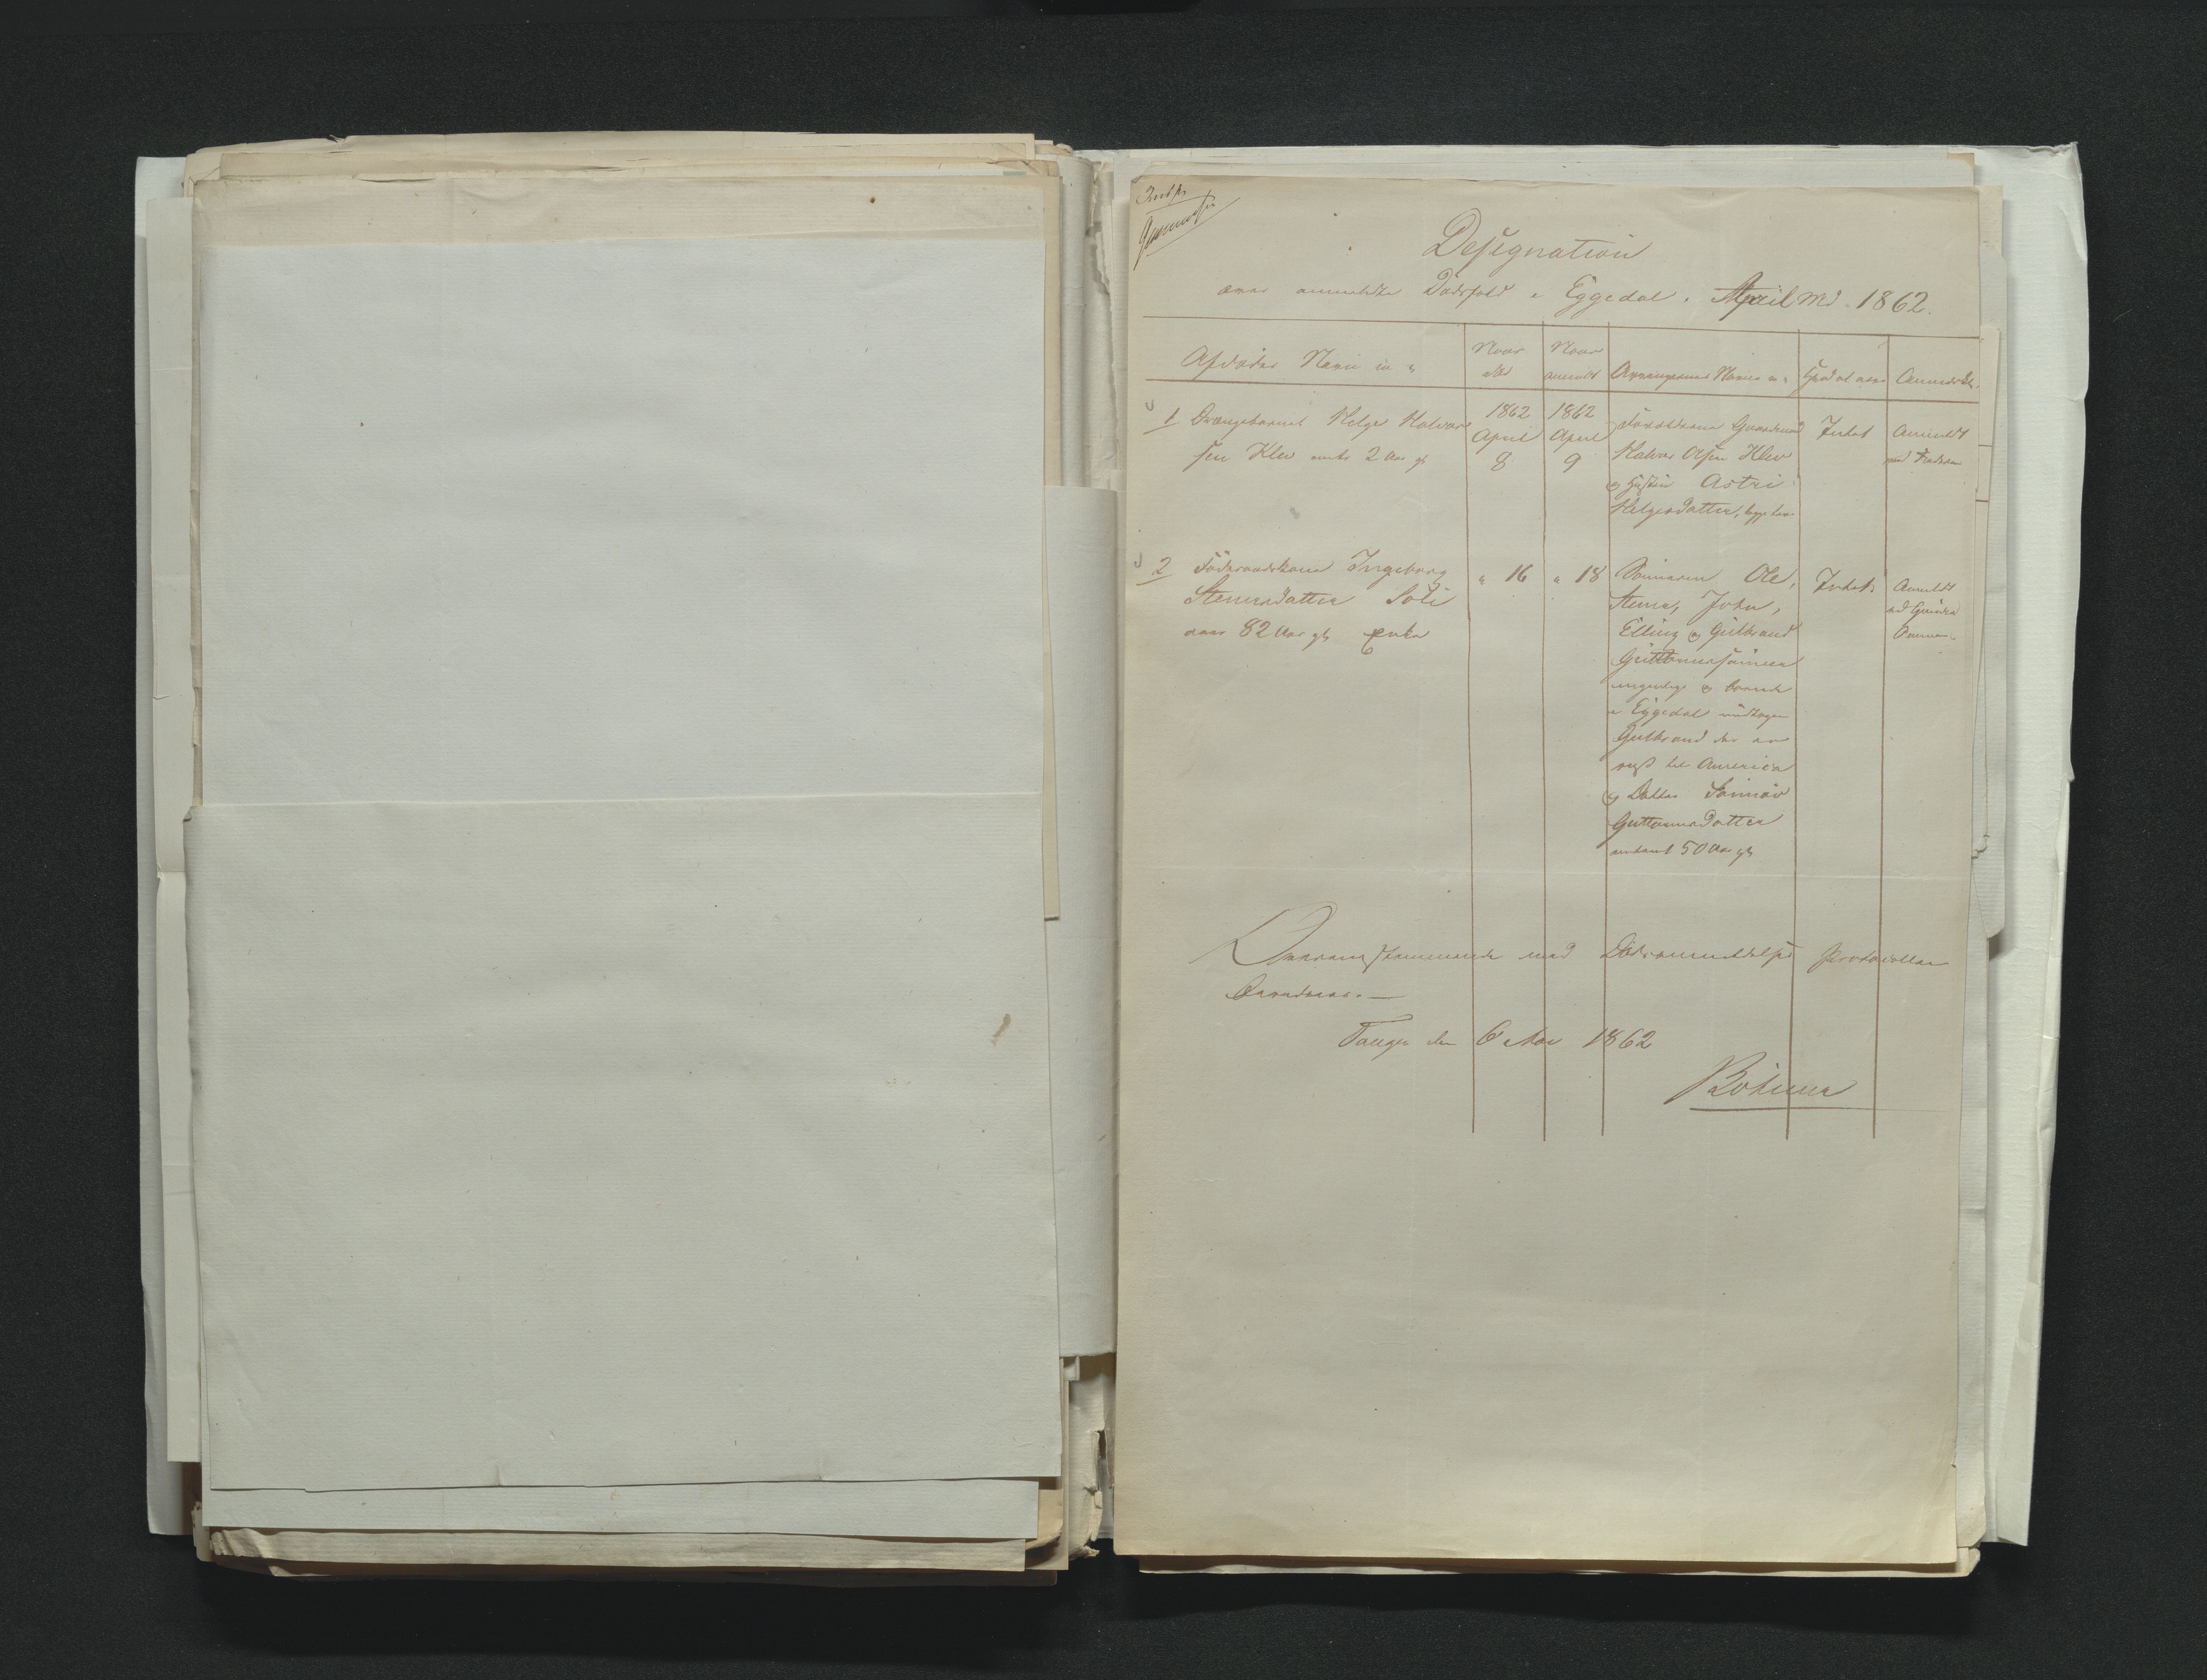 Designation
over anmeldte Dødsfald i Eggedal i April Md. 1862.
Afdødes Navn m. v.
Naar død
Naar anmeldt
Arvingernes Navne m. v.
Hvad at arve
Anmærkn.
1 Drengebarnet Helge Halvor
sen Klev 2 Aar gl
1862
April
8
1862
April
9
Forældrene Gaardmand
Halvor Olsen Klev
og Hustru Astri
Helgesdatter, begge
Intet
Anmeldt
ved Faderen
2 Føderaadskone Ingeborg
Stenersdatter Soli
82 Aar gl Enke
" 16
" 18
Sønnerne Ole,
Stener, John,
Elling og Gulbrand
Guttormssønner
myndige og boende
i Eggedal undtagen
Gulbrand der er
reist til America
og Datter Sønnøv
Guttormsdatter
omtrent 50 Aar gl
Intet
Anmeldt
ved
Sønnen
Overensstemmende med Dødsanmeldelses Protocollen
bevidnes. —
den 6 Mai 1862